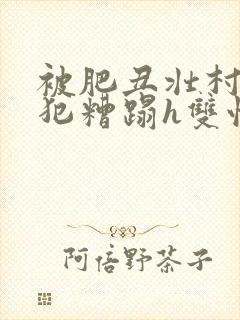 被肥丑壮村
犯糟蹋h雙性
阿倍野茶子